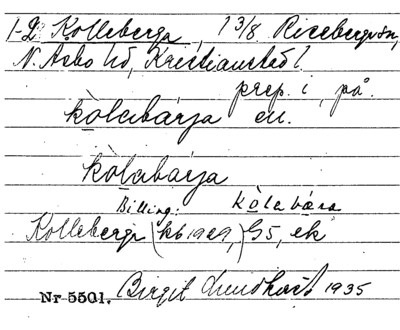 1-2 Kolleberga, 1 3/8 Risebergasn,
N. Åsbo hd, Kristianstad l.
prep. i, på.
kòlabárja en.
kòlabárja
Billing: kòlabæra
Kolleberga (kb 1929,) G5, ek
Nr 5501. Birgit Lundkvist 1935